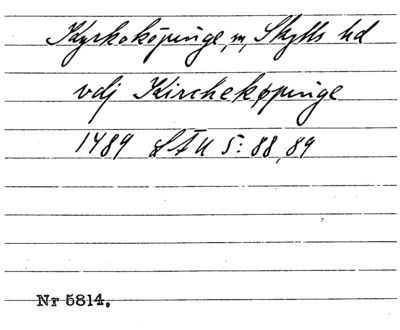 Kyrkoköpinge, m, Skytts hd
vdj Kircheköpinge
1489 LÅU 5: 88, 89
Nr 5814.